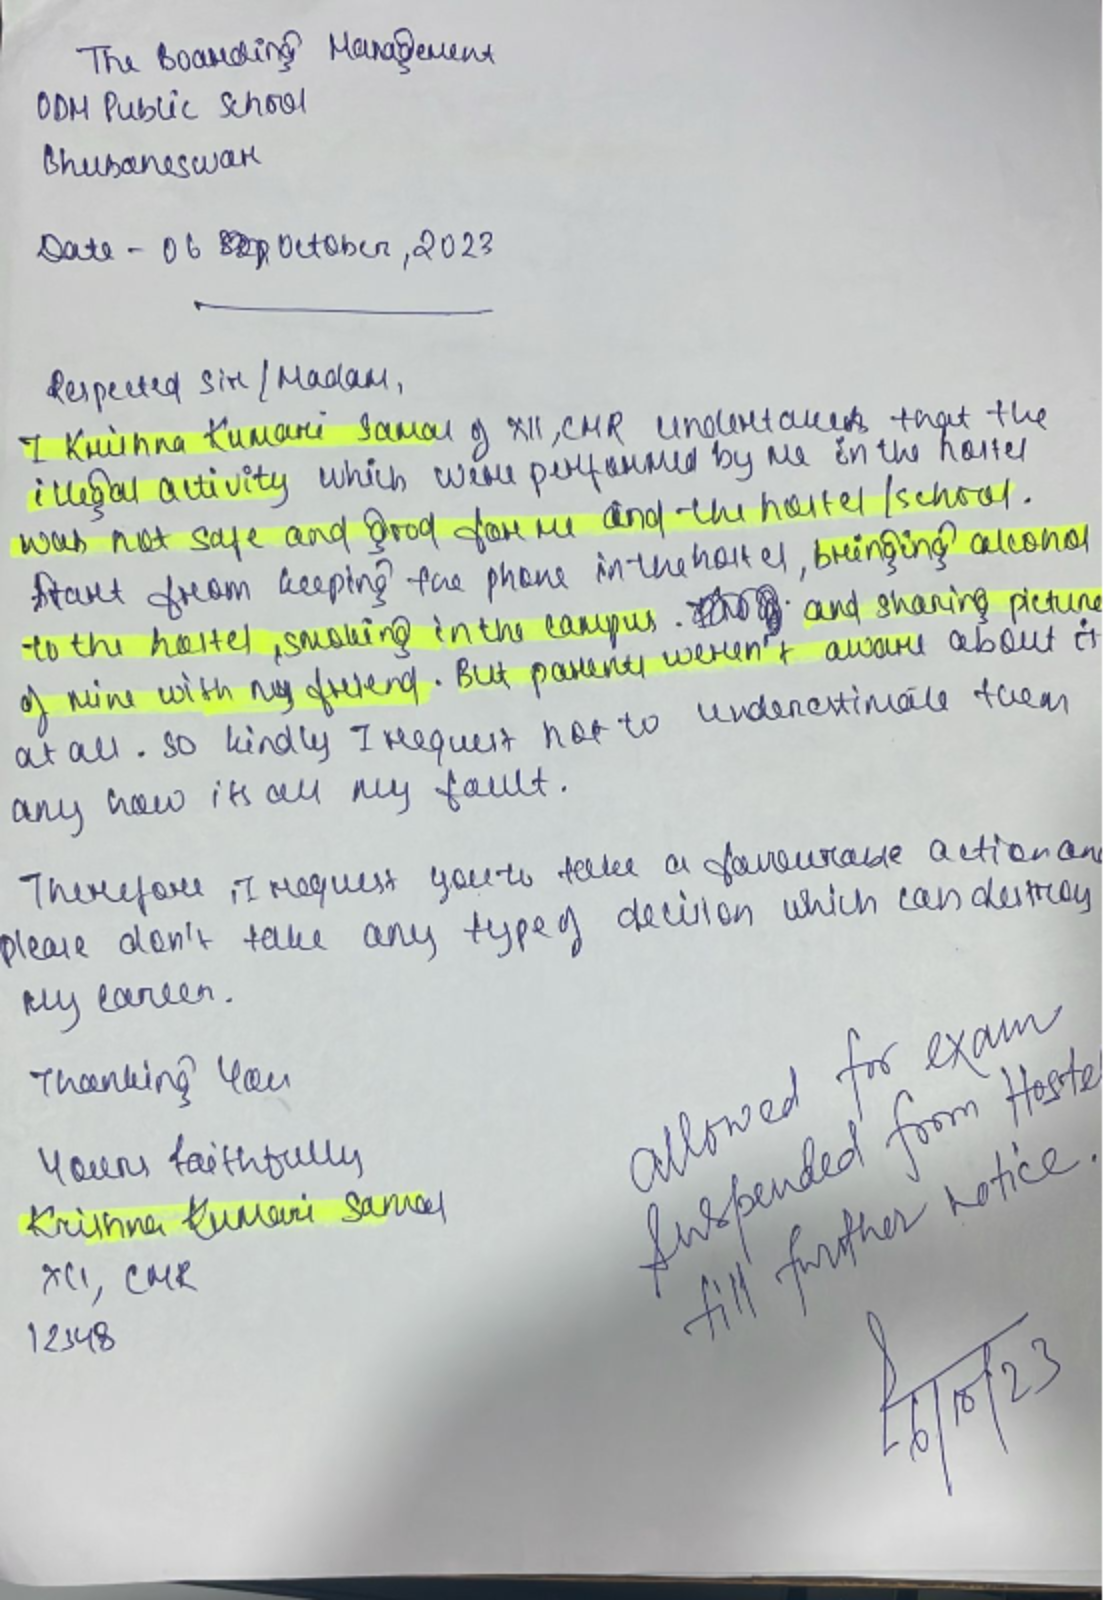 The Boarding Management
ODM Public School
Bhubaneswar
Date - 06 October, 2023
Respected Sir/Madam,
I Krishna Kumari Samal of XII, CMR undertakes that the
illegal activity which were performed by me in the hostel
was not safe and good for me and the hostel/school.
Start from keeping the phone in the hostel, bringing alcohol
to the hostel, smoking in the campus. and sharing picture
of mine with my friend. But parents weren't aware about it
at all. So kindly I request not to underestimate them
any how its all my fault.
Therefore, I request you to take a favourable action and
please don't take any type of decision which can destroy
my career.
Thanking You
Yours faithfully
Krishna Kumari Samal
XII, CMR
12348
allowed for exam
Suspended from Hostel
till further notice.
6/10/23